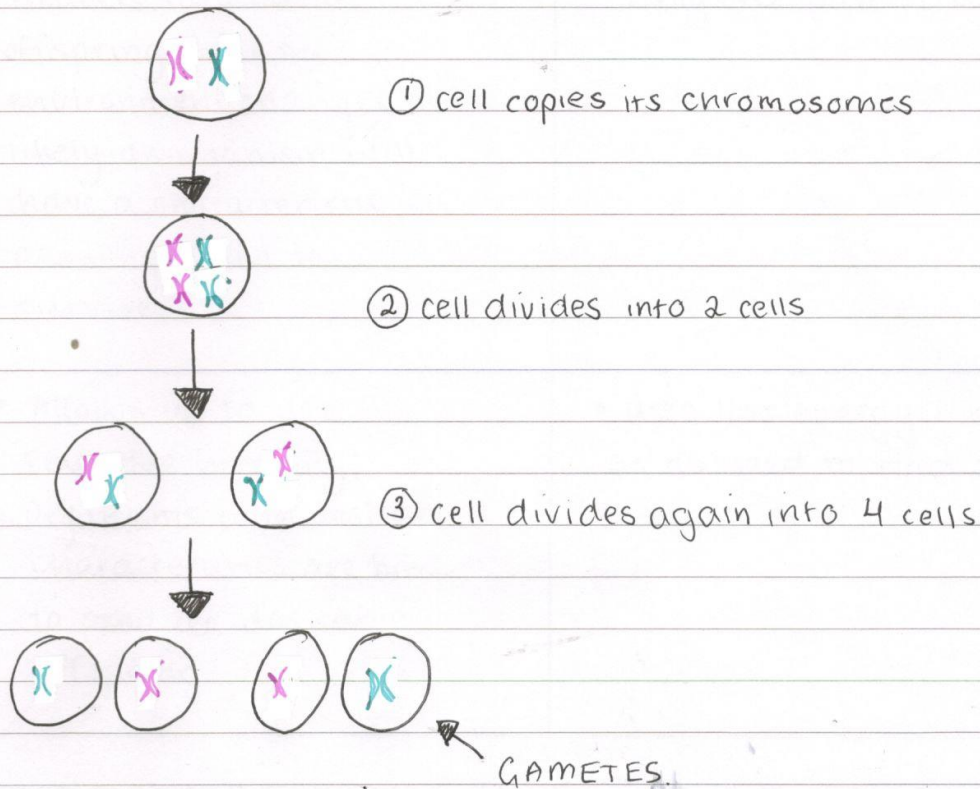 ① cell copies its chromosomes
② cell divides into 2 cells
③ cell divides again into 4 cells
GAMETES.